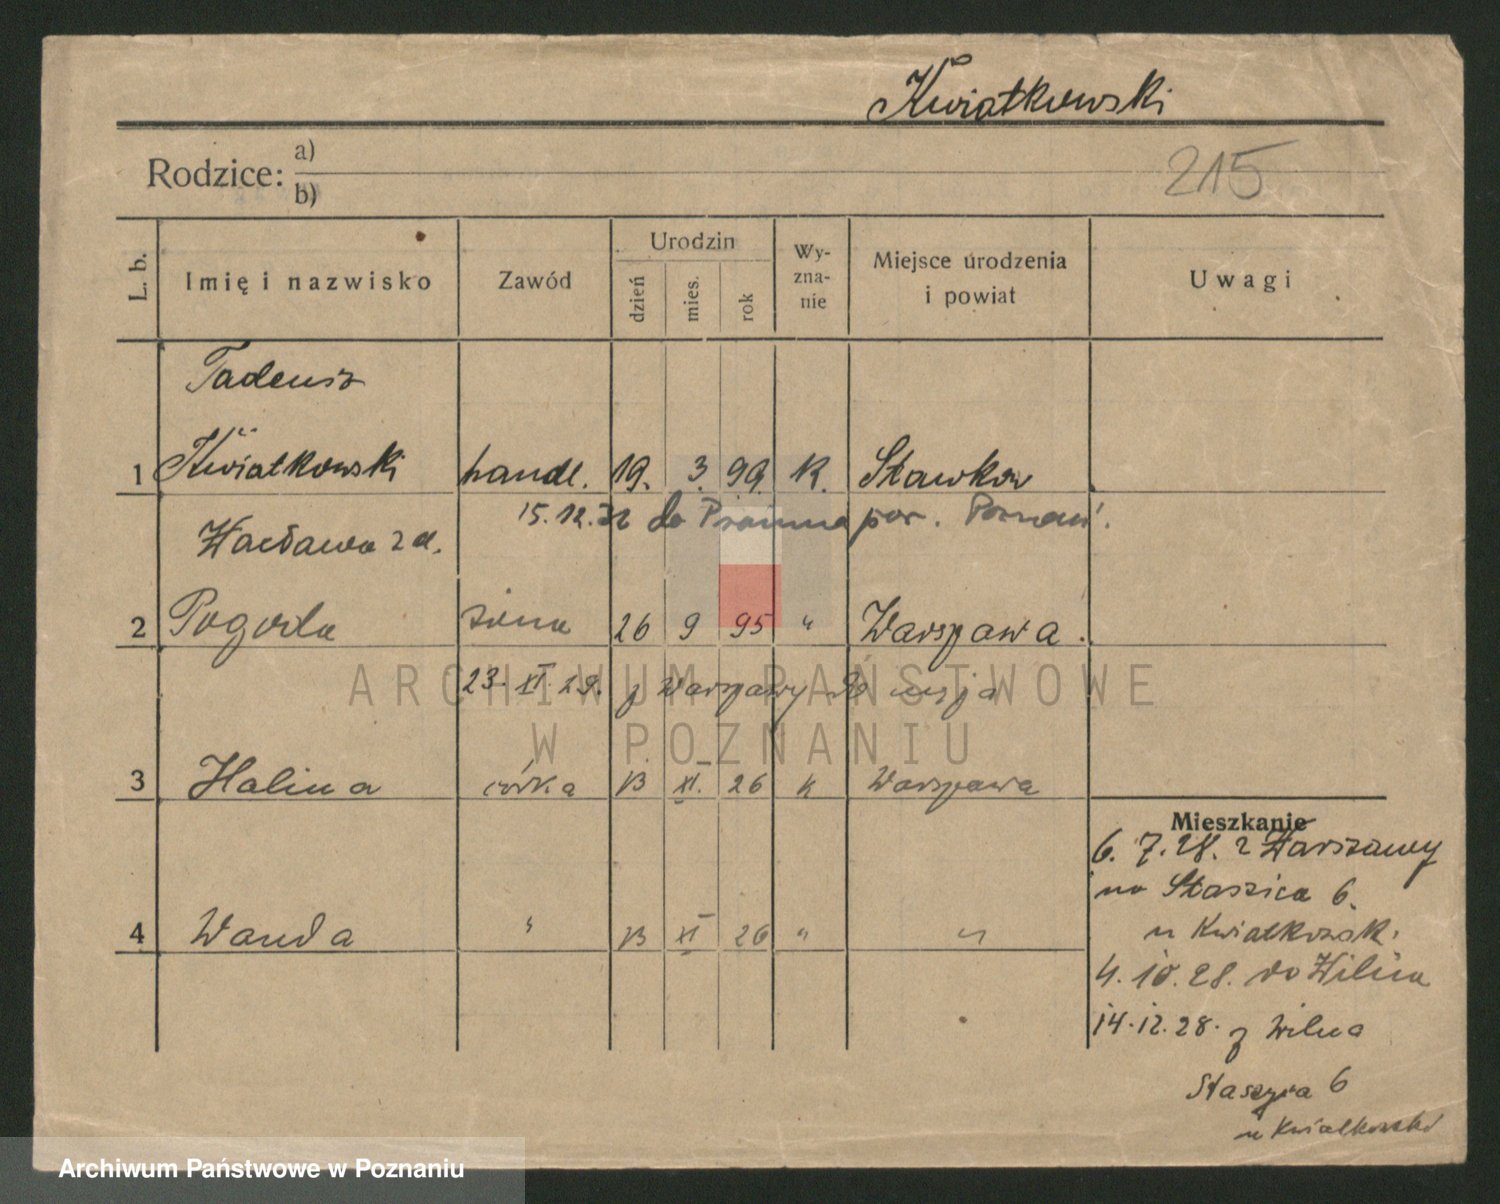 Kwiatkowski
Rodzice: a)
b)
215
L. b.
Imię i nazwisko
Zawód
Urodzin
dzień
mies.
rok
Wy-
zna-
nie
Miejsce urodzenia
i powiat
Uwagi
Tadeusz
1 Kwiatkowski handl. 19. 3. 99. K. Sławków
15.12.32 do pow. Poznań.
Wacława z d.
2 Pogoda żona 26 9 95 " Warszawa.
23. XI. 29. z Warszawy
3 Halina córka 13 XI. 26 K Warszawa
4 Wanda " 13 XI 26 " "
Mieszkanie
6. 7. 28. z Warszawy
na Staszica 6.
u Kwiatkowsk.
4. 10. 28. do Wilna
14. 12. 28. z Wilna
Staszyca 6
u Kwiatkowski
ARCHIWUM PAŃSTWOWE
W POZNANIU
Archiwum Państwowe w Poznaniu